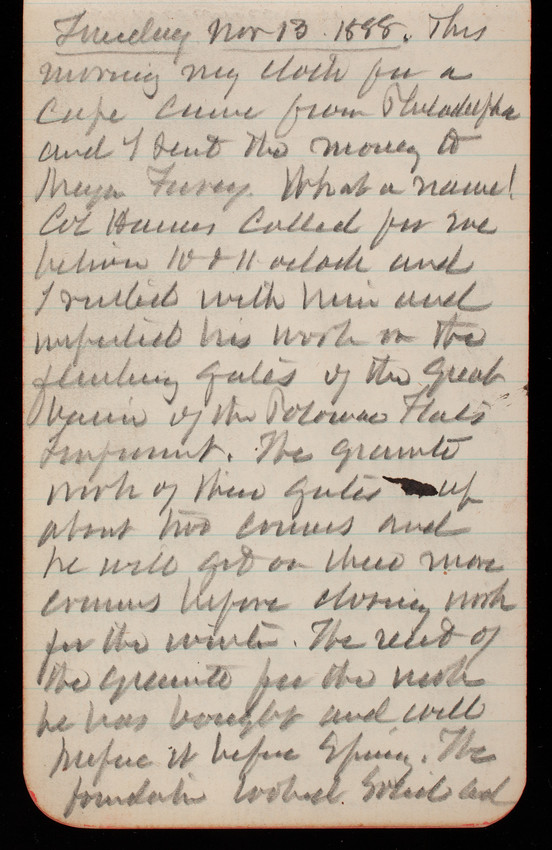 Tuesday Nov 13 1888. This
morning my cloth for a
cape came from Philadelphia
and I sent the money to
What a name!
Col Hains called for me
between 10 & 11 oclock and
I visited with him and
inspected his work on the
flushing gates of the great
basin of the Potomac Flats
Improvmt. The granite
work of these gates up
about two courses and
he will get on three more
courses before closing work
for the winter. The rest of
the granite for the work
he has bought and will
before Spring. The
foundation looked solid and